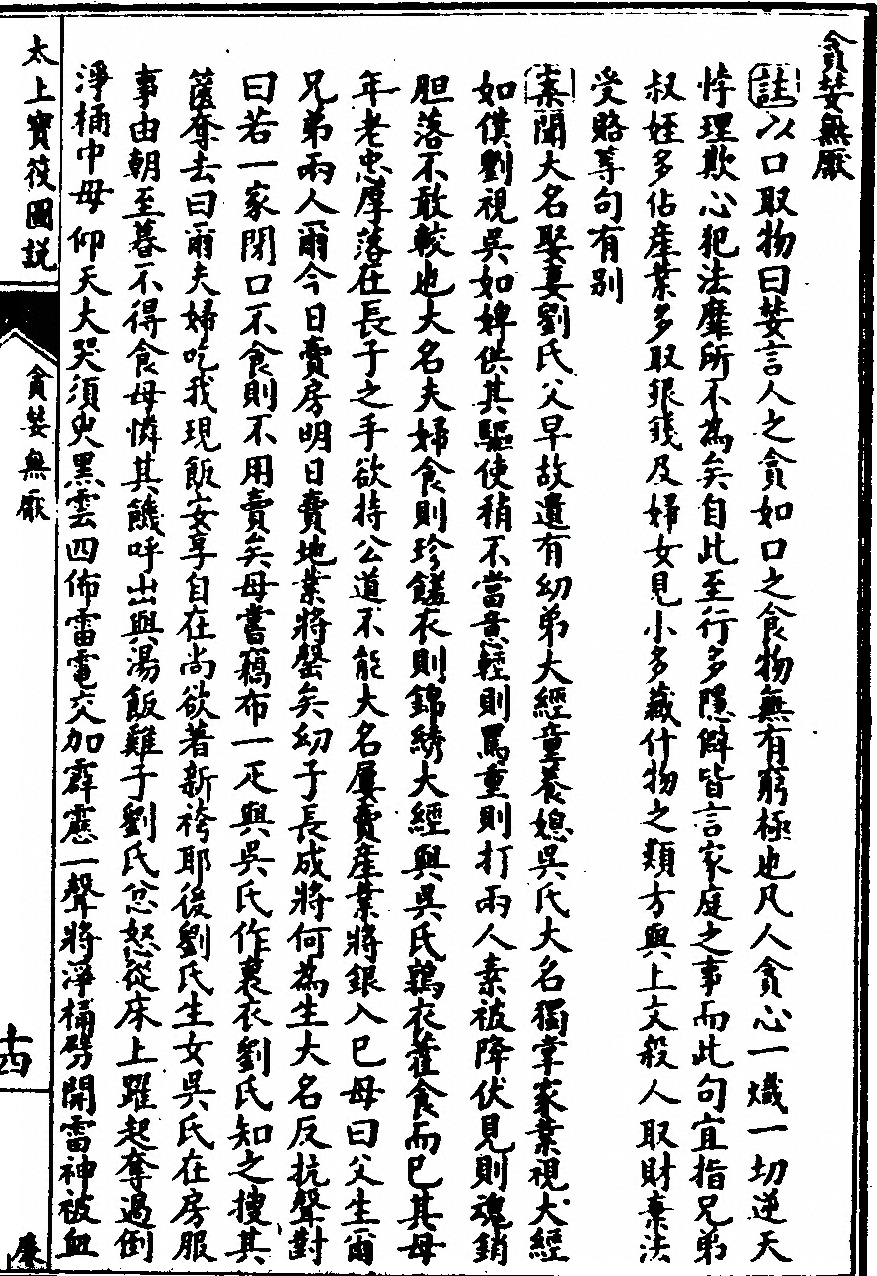 貪婪無厭
註以口取物曰婪言人之貪如口之食物無有窮極也凡人貪心一熾一切逆天
悖理欺心犯法靡所不為矣自此至行多隱僻皆言家庭之事而此句宜指兄弟
叔姪多佔產業多取銀錢及婦女見小多藏什物之類方與上文殺人取財棄法
受賂等句有別
案聞大名娶妻劉氏父早故遺有幼弟大經童養媳吳氏大名獨掌家業視大經
如僕劉視吳如婢供其驅使稍不當意輕則罵重則打兩人素被降伏見則魂銷
胆落不敢較也大名夫婦食則珍饈衣則錦綉大經與吳氏鶉衣藿食而已其母
年老忠厚落在長子之手欲持公道不能大名屢賣產業將銀入已母曰父生爾
兄弟兩人爾今日賣房明日賣地業將罄矣幼子長成將何為生大名反抗聲對
曰若一家閉口不食則不用賣矣母嘗藏布一疋與吳氏作裏衣劉氏知之搜其
篋奪去曰爾夫婦吃我現飯安享自在尚欲著新袴耶後劉氏生女吳氏在房服
事由朝至暮不得食母憐其饑呼出與湯飯雞子劉氏忿怒從床上躍起奪過倒
淨桶中母仰天大哭須臾黑雲四佈雷電交加霹靂一聲將淨桶劈開雷神被血
太上寶筏圖說
貪婪無厭
十四
廉